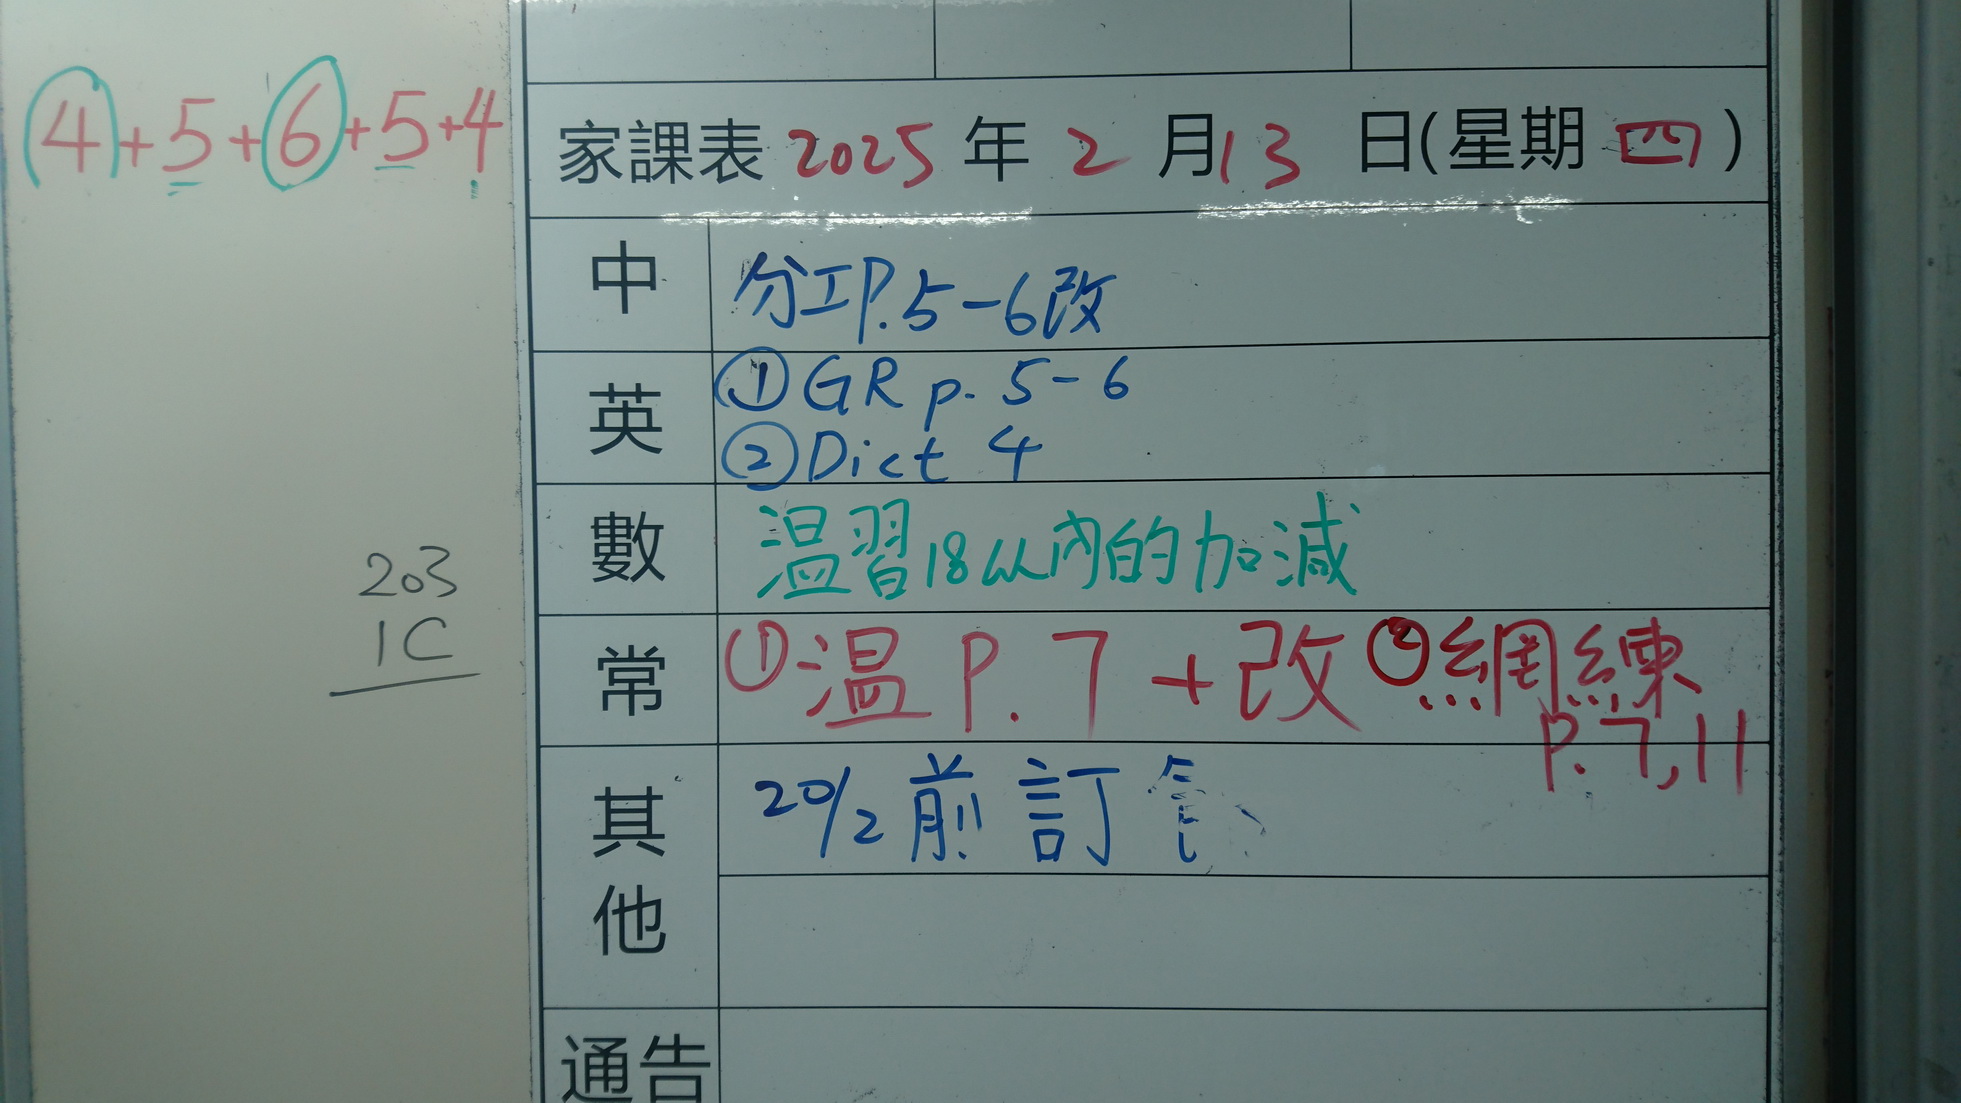 4+5+6+5+4
203
1C
家課表 2025 年 2 月 13 日(星期 四)
中 分工P.5-6改
英 ①GR p. 5-6
②Dict 4
數 温習18以內的加減
常 ①温 P.7 + 改 ②網練
P.7,11
其他 20/2 前 訂
通告